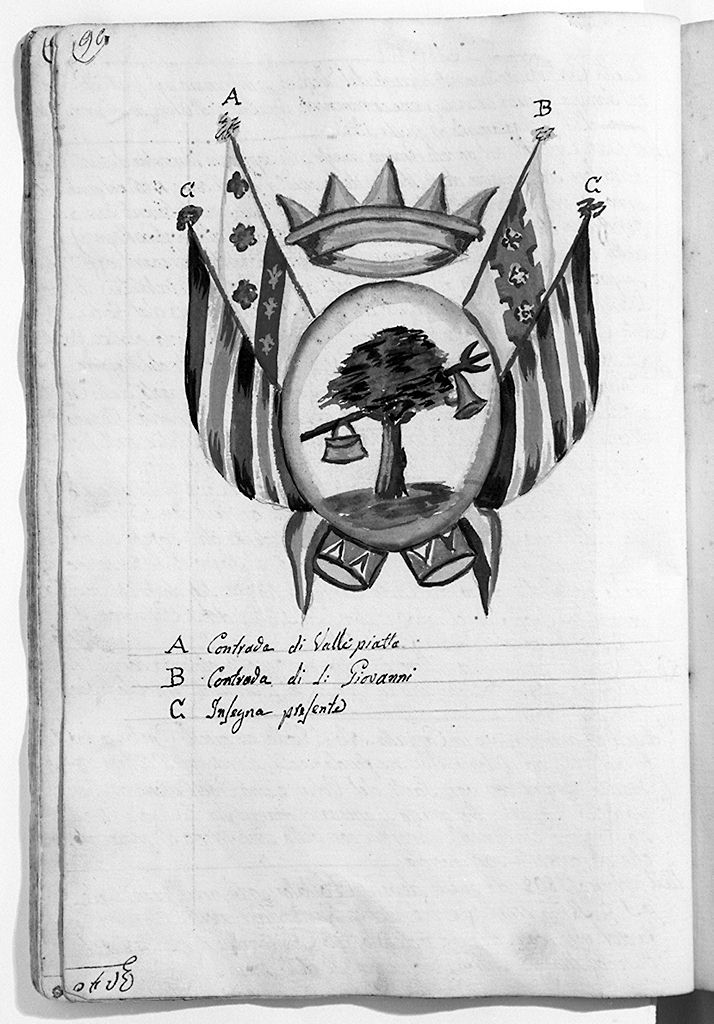 90
A
B
C
C
A Contrada di Valle piatta
B Contrada di S: Giovanni
C Insegna presente